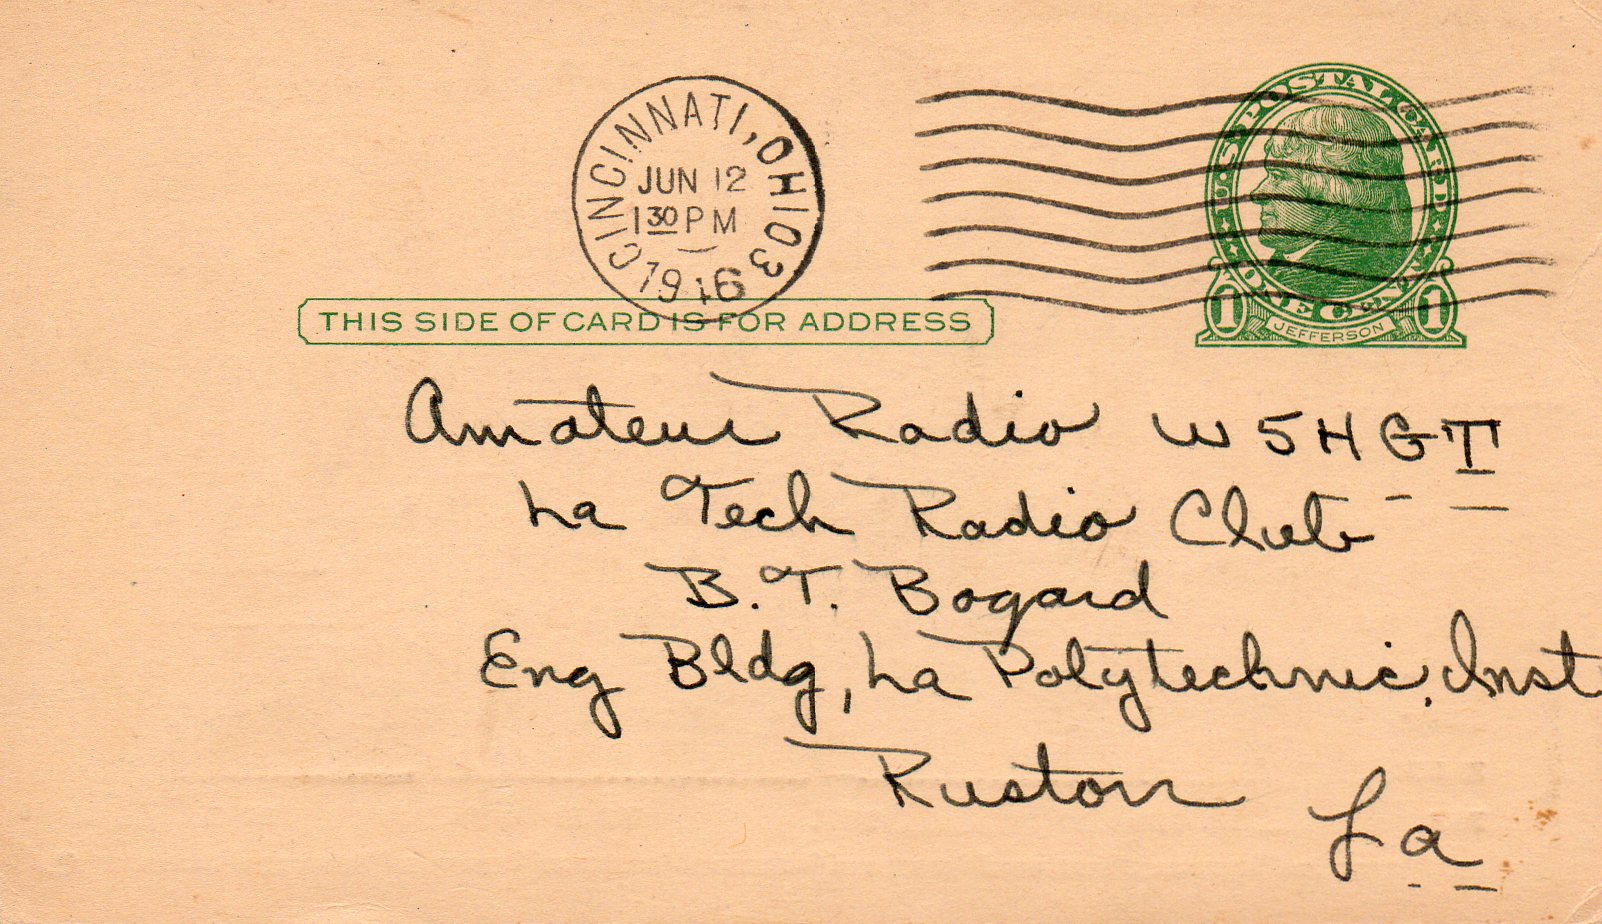 CINCINNATI, OHIO 3
JUN 12
1 30 PM
1946
U.S. POSTAL CARD
ONE CENT
1 JEFFERSON 1
THIS SIDE OF CARD IS FOR ADDRESS
Amateur Radio W5HGT
La Tech Radio Club
B. T. Bogard
Eng Bldg, La Polytechnic Inst
Ruston
La